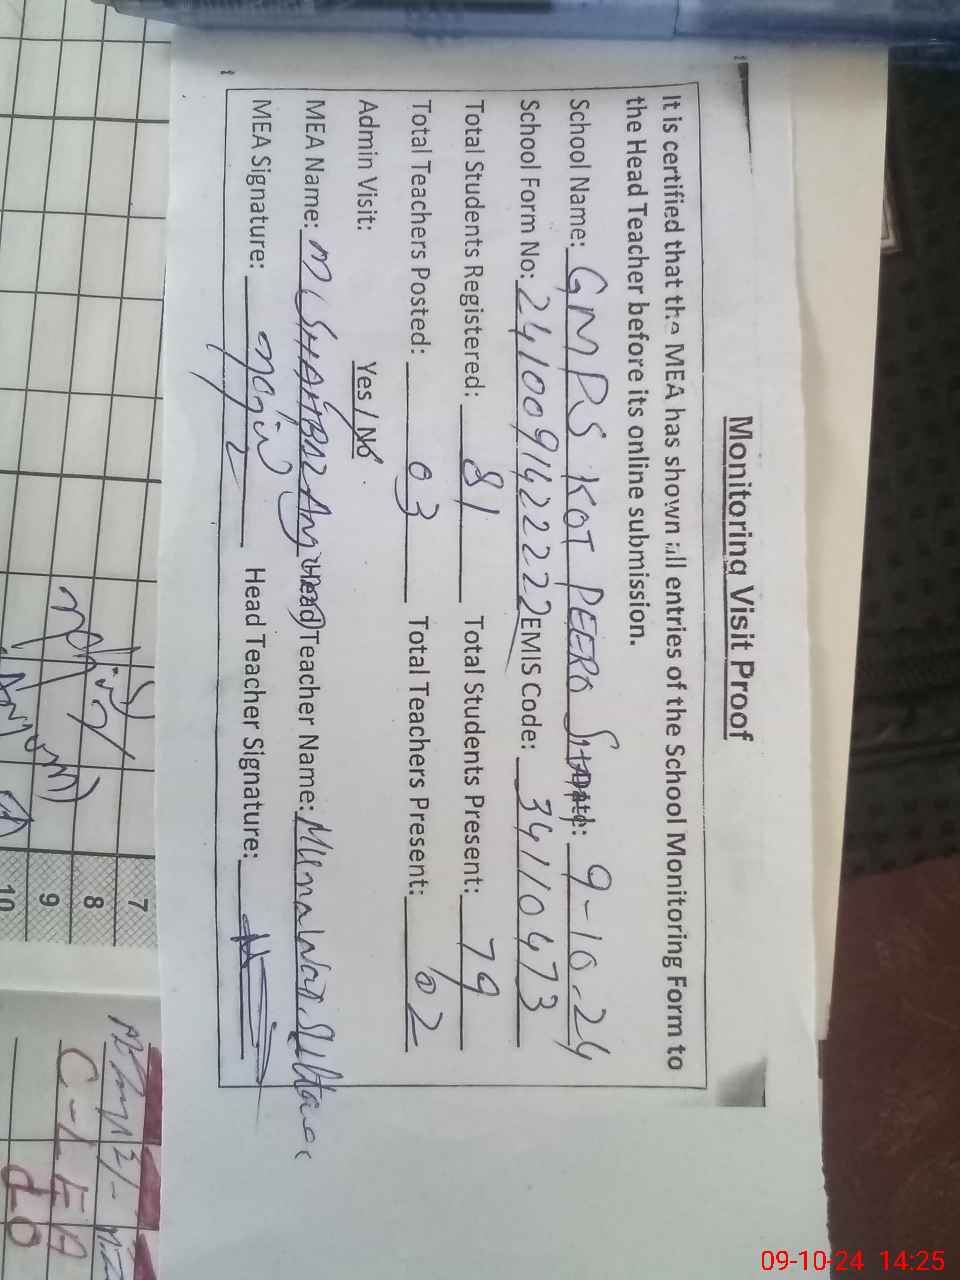 Monitoring Visit Proof
It is certified that the MEA has shown all entries of the School Monitoring Form to
the Head Teacher before its online submission.
School Name: GMPS KOT PEERO SHAH Date: 9-10-24
School Form No: 24100914222 2 EMIS Code: 34110473
Total Students Registered: 81 Total Students Present: 79
Total Teachers Posted: 03 Total Teachers Present: 02
Admin Visit: Yes / No
MEA Name: M SHAHBAZ Head Teacher Name: Munnawar Sultana
MEA Signature: Head Teacher Signature:
7
8
9
10
C-LEA
09-10-24 14:25